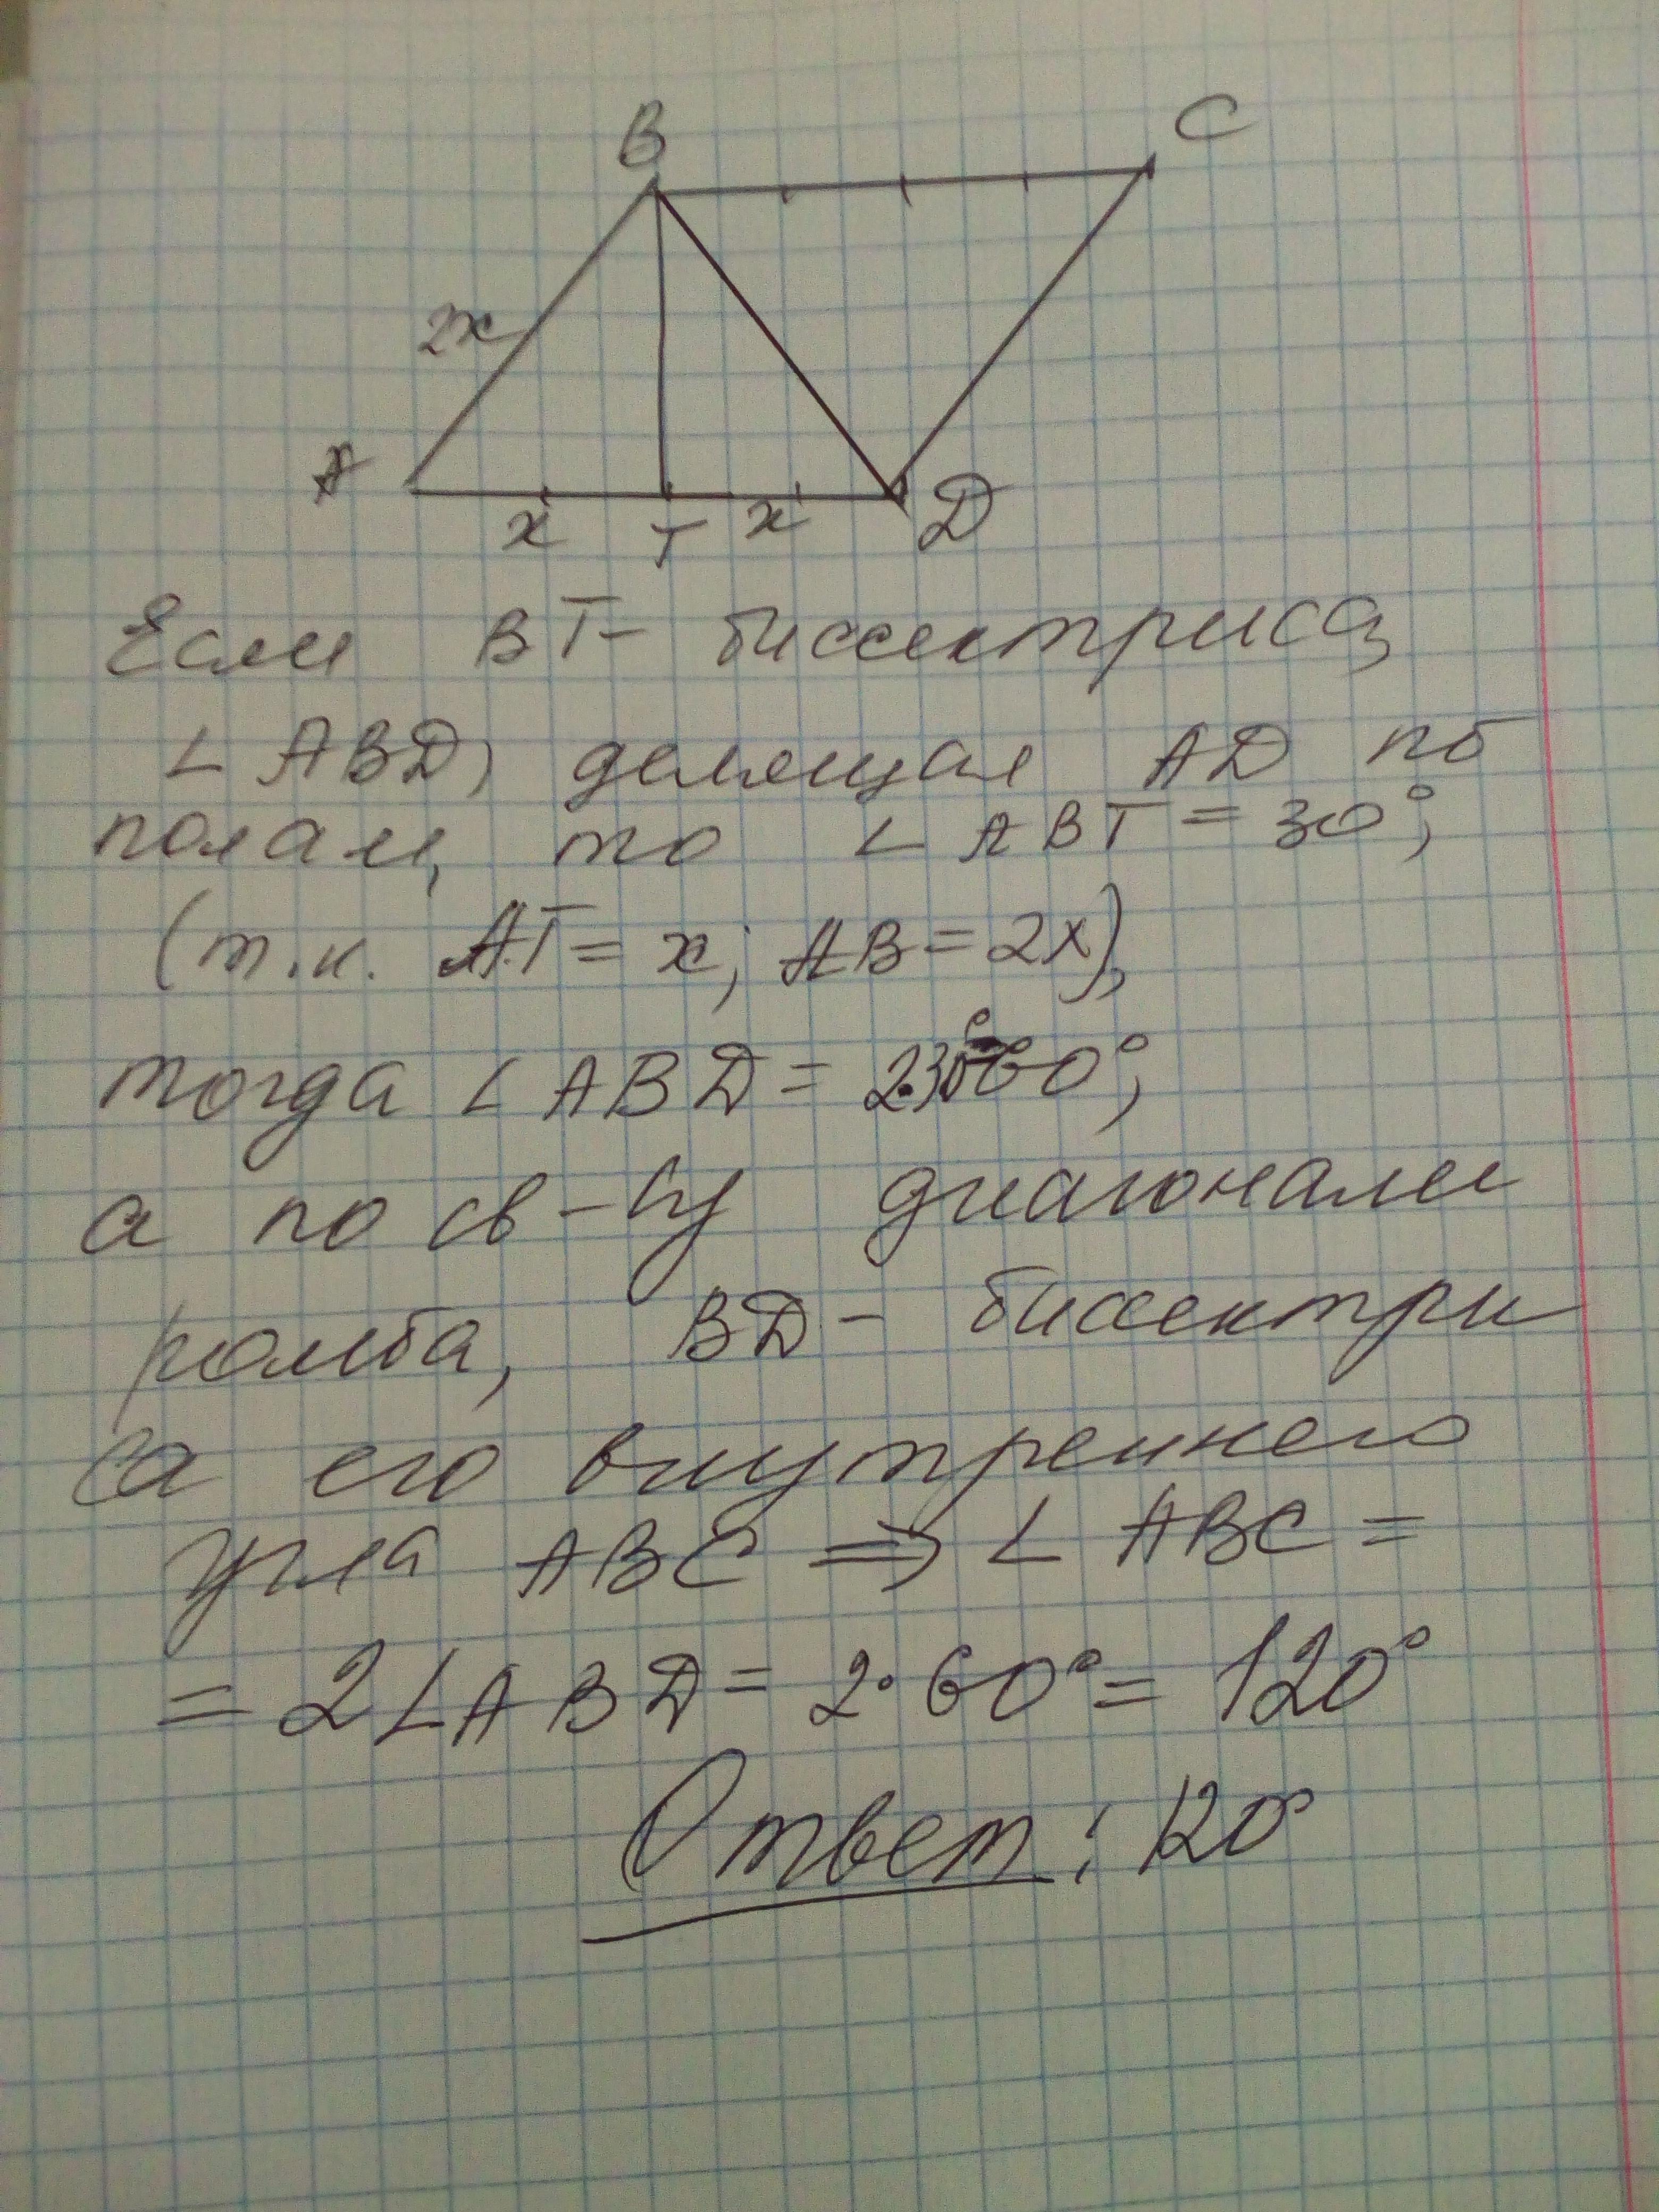 B C
2x
A x T x D
Если BT- биссектриса
∠ ABD, делящая AD по
полам, то ∠ ABT = 30°,
(т.к. AT = x; AB = 2x),
тогда ∠ ABD = 2·30° 60°,
а по св-ву диагоналей
ромба, BD - биссектри
са его внутреннего
угла ABC ⇒ ∠ ABC =
= 2∠ABD = 2·60° = 120°
Ответ: 120°